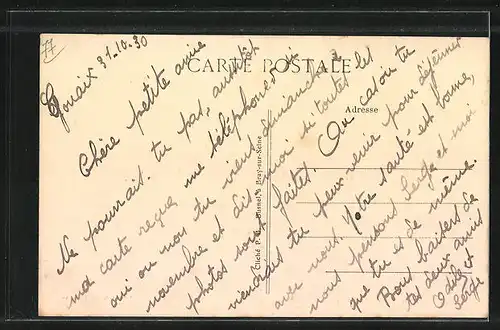 77
Gouaix 31-10-30
CARTE POSTALE
Adresse
Cliché P. Roussel, à Bray-sur-Seine
Chère petite amie
Ne pourrais-tu pas, aussitôt
ma carte reçue me téléphoner si
oui ou non tu viens dimanche 2
novembre et dis-moi si toutes les
photos sont faites. Au cas où tu
viendrais tu peux venir pour déjeuner
avec nous. Votre santé est bonne,
nous pensons Serge et moi
que tu es de même.
Bons baisers de
tes deux amis
Odile &
Serge